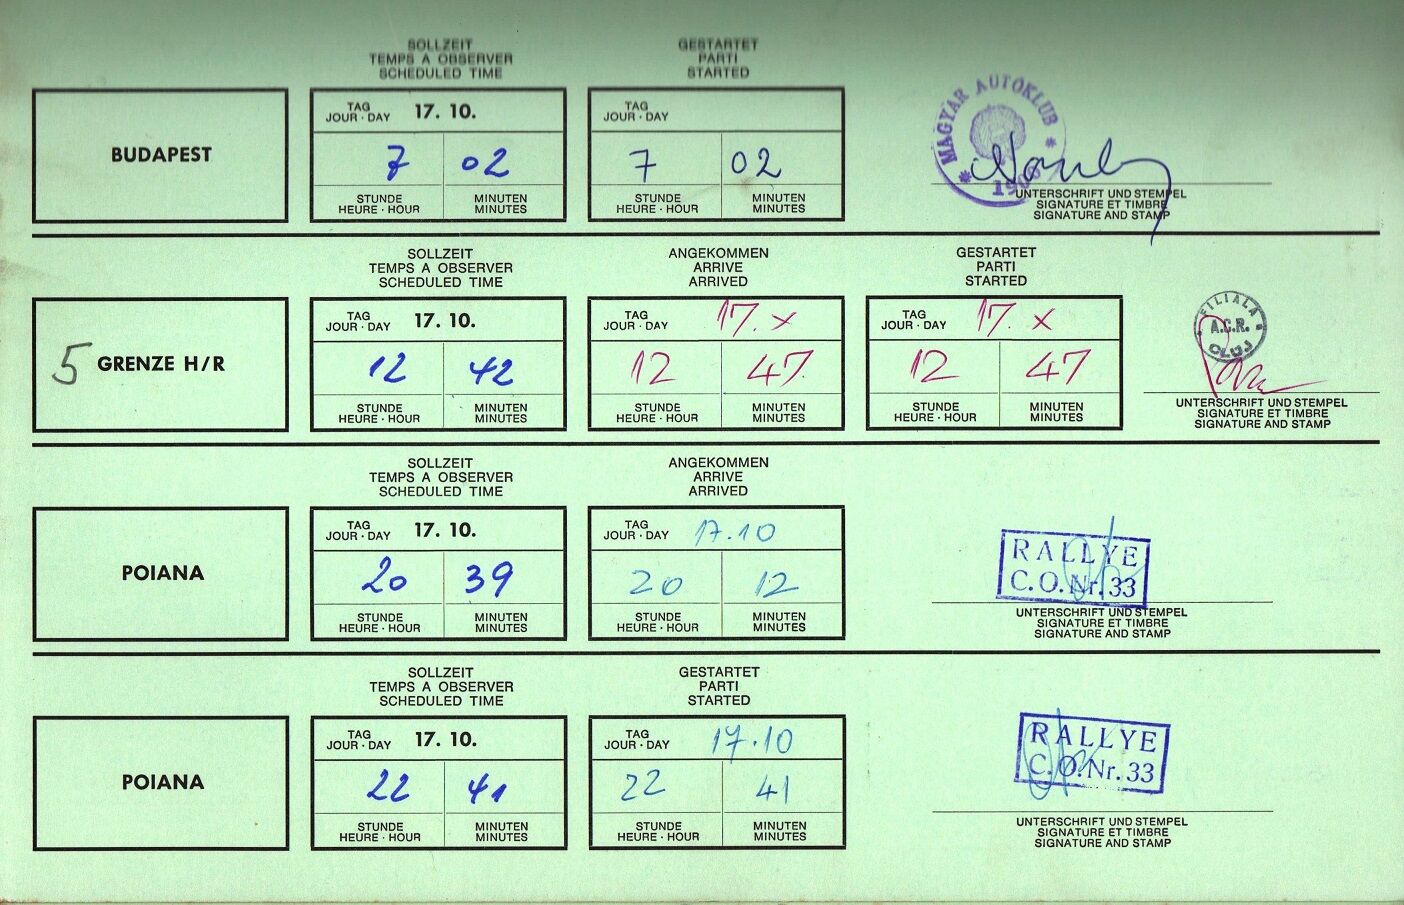 SOLLZEIT
TEMPS A OBSERVER
SCHEDULED TIME
GESTARTET
PARTI
STARTED
BUDAPEST
TAG
JOUR · DAY
17. 10.
7 02
STUNDE
HEURE · HOUR
MINUTEN
MINUTES
TAG
JOUR · DAY
7 02
STUNDE
HEURE · HOUR
MINUTEN
MINUTES
MAGYAR AUTÓKLUB
UNTERSCHRIFT UND STEMPEL
SIGNATURE ET TIMBRE
SIGNATURE AND STAMP
SOLLZEIT
TEMPS A OBSERVER
SCHEDULED TIME
ANGEKOMMEN
ARRIVE
ARRIVED
GESTARTET
PARTI
STARTED
5 GRENZE H/R
TAG
JOUR · DAY
17. 10.
12 42
STUNDE
HEURE · HOUR
MINUTEN
MINUTES
TAG
JOUR · DAY
17. X
12 47
STUNDE
HEURE · HOUR
MINUTEN
MINUTES
TAG
JOUR · DAY
17. X
12 47
STUNDE
HEURE · HOUR
MINUTEN
MINUTES
FILIALA
A.C.R.
CLUJ
UNTERSCHRIFT UND STEMPEL
SIGNATURE ET TIMBRE
SIGNATURE AND STAMP
SOLLZEIT
TEMPS A OBSERVER
SCHEDULED TIME
ANGEKOMMEN
ARRIVE
ARRIVED
POIANA
TAG
JOUR · DAY
17. 10.
20 39
STUNDE
HEURE · HOUR
MINUTEN
MINUTES
TAG
JOUR · DAY
17.10
20 12
STUNDE
HEURE · HOUR
MINUTEN
MINUTES
RALLYE
C.O.Nr.33
UNTERSCHRIFT UND STEMPEL
SIGNATURE ET TIMBRE
SIGNATURE AND STAMP
SOLLZEIT
TEMPS A OBSERVER
SCHEDULED TIME
GESTARTET
PARTI
STARTED
POIANA
TAG
JOUR · DAY
17. 10.
22 41
STUNDE
HEURE · HOUR
MINUTEN
MINUTES
TAG
JOUR · DAY
17.10
22 41
STUNDE
HEURE · HOUR
MINUTEN
MINUTES
RALLYE
C.O.Nr.33
UNTERSCHRIFT UND STEMPEL
SIGNATURE ET TIMBRE
SIGNATURE AND STAMP